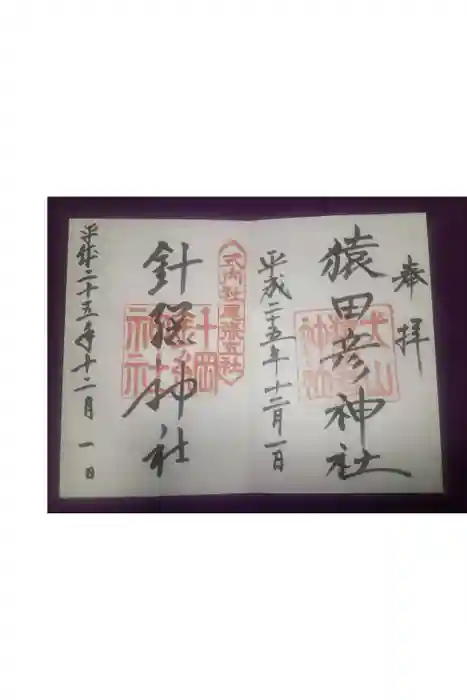 奉拝
猿田彦神社
平成二十五年十二月一日
式内社尾張五社
針綱神社
平成二十五年十二月一日